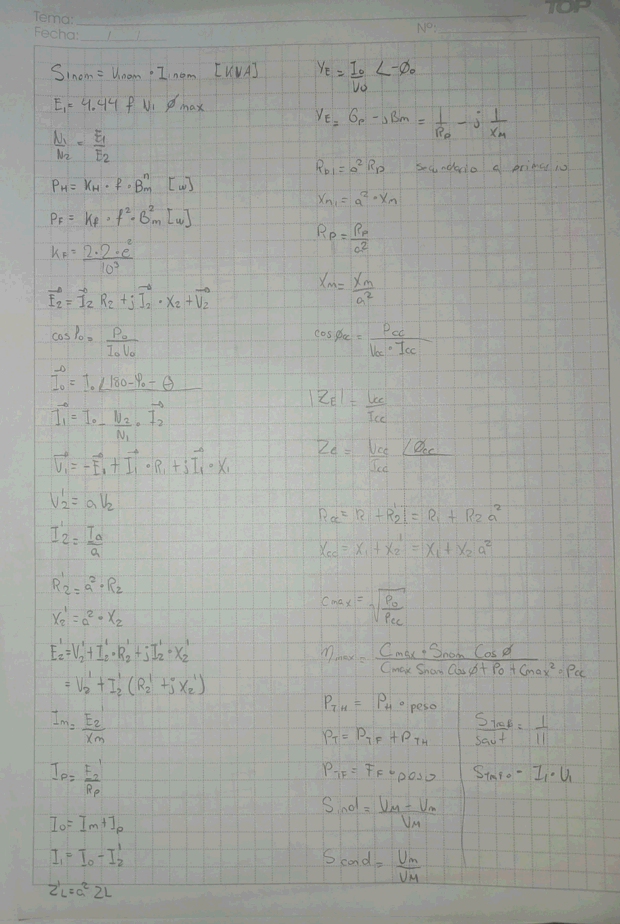 TOP
Tema:
Fecha: / /
Nº:
Sınom = Vınom · Iınom [KVA]
E₁ = 4.44 f N₁ Ømax
N₁/N₂ = E₁/E₂
PH = KH · f · Bmⁿ [w]
PF = KF · f² · B²m [w]
KF = 2.2 · e²/10³
E⃗₂ = I⃗₂ R₂ + j I⃗₂ · X₂ + V⃗₂
cos φ₀ = P₀/I₀V₀
I⃗₀ = I₀ /180 - φ₀ - θ
I⃗₁ = I₀ - N₂/N₁ · I⃗₂
V⃗₁ = -E⃗₁ + I⃗₁ · R₁ + j I⃗₁ · X₁
V₂' = a V₂
I₂' = I₂/a
R₂' = a² · R₂
X₂' = a² · X₂
E₂' = V₂' + I₂' · R₂' + j I₂' · X₂'
= V₂' + I₂' (R₂' + j X₂')
Im = E₂'/Xm
Ip = E₂'/Rp
I₀ = Im + Ip
I₁ = I₀ - I₂'
Z'L = a² ZL
YE = I₀/V₀ ∠-Ø₀
YE = Gp - j Bm = 1/Rp - j 1/XM
Rp₁ = a² Rp secundario a primario
Xm₁ = a² · Xm
Rp = Rp/a²
Xm = Xm/a²
cos Øcc = Pcc/Vcc · Icc
|ZE| = Vcc/Icc
Ze = Vcc/Icc /Øcc
Rcc = R₁ + R₂' = R₁ + R₂ a²
Xcc = X₁ + X₂' = X₁ + X₂ a²
Cmax = √P₀/Pcc
ηmax = Cmax · Snom Cos Ø/Cmax Snom Cos Ø + P₀ + Cmax² · Pcc
PTH = PH · peso
PT = PTF + PTH
PTF = FF · peso
Sind = VM - Vm/VM
Scond = Vm/VM
Straf/Saut = 1/11
Strafo = I₁ · U₁